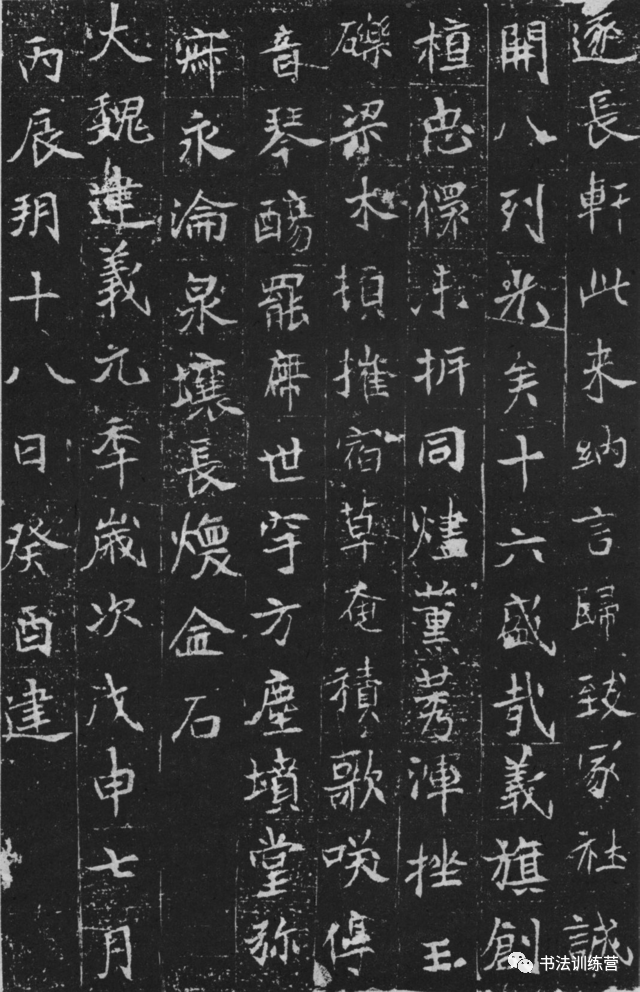 長軒此来納言歸致冢社誠
開八列光矣十六盛哉義旗創
植忠未折同燼薰莠渾挫玉
礫梁木摧宿草奄積歌咲停
音琴罷席世穸方塵墳堂弥
寐永淪泉壤長煥金石
大魏建義元秊歲次戊申七月
丙辰玥十八日癸酉建
书法训练营